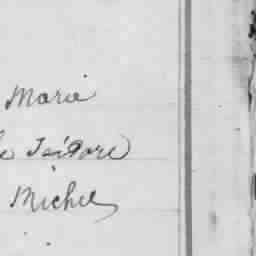 Marie
e Isidore
Michel